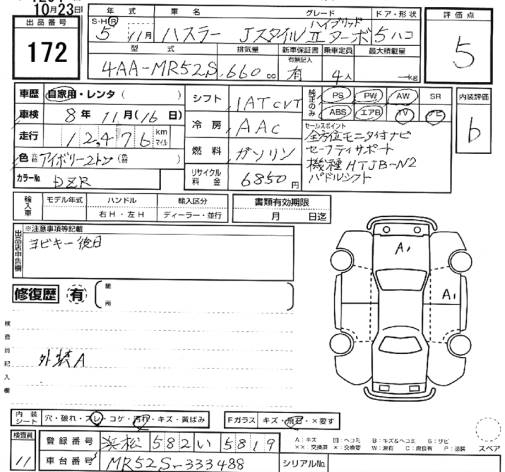 10月23日
出品番号
172
年式 車名 グレード ドア・形状
S・H・R 5年 11月 ハスラー Jスタイル Ⅱ ターボ ハイブリッド 5 ハコ
型式 排気量 新車保証書 乗車定員 最大積載量
4AA-MR52S 660cc 有 4人 kg
評価点
5
内装評価
b
車歴 自家用・レンタ( )
車検 8年 11月(16日)
走行 12,476 km マイル
色 アイボリー2トン
カラーNo DZR
シフト IAT CVT
冷房 AAC
燃料 ガソリン
リサイクル料金 6850円
純正のみ PS PW AW SR
ABS エアB TV ナビ
セールスポイント
全方位モニタ付ナビ
セーフティサポート
機種HTJB-N2
パドルシフト
輸入車 モデル年式 ハンドル 輸入区分
年 右H・左H ディーラー・並行
書類有効期限
月 日迄
※注意事項等記載
ヨビキー後日
修復歴 有
箇所
検査員記入欄
外装A
A1
A1
内装シート 穴・破れ・スレ・コゲ・汚れ・キズ・黄ばみ
Fガラス キズ・飛石・×要す
A:キズ 凹:ヘコミ B:キズ&ヘコミ S:サビ
××:交換済 ×:交換要 W:波有 C:腐食有 P:塗装
スペア
検査員
11
登録番号 浜松 582 い 5819
車台番号 MR52S-333488
シリアルNo.